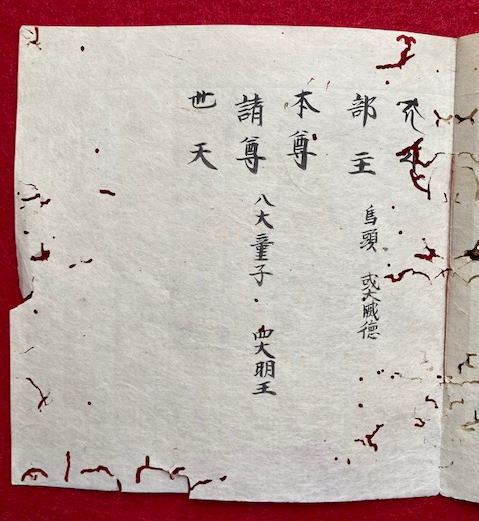 火天
部主 馬頭 或大威徳
本尊
請尊 八大童子 四大明王
世天